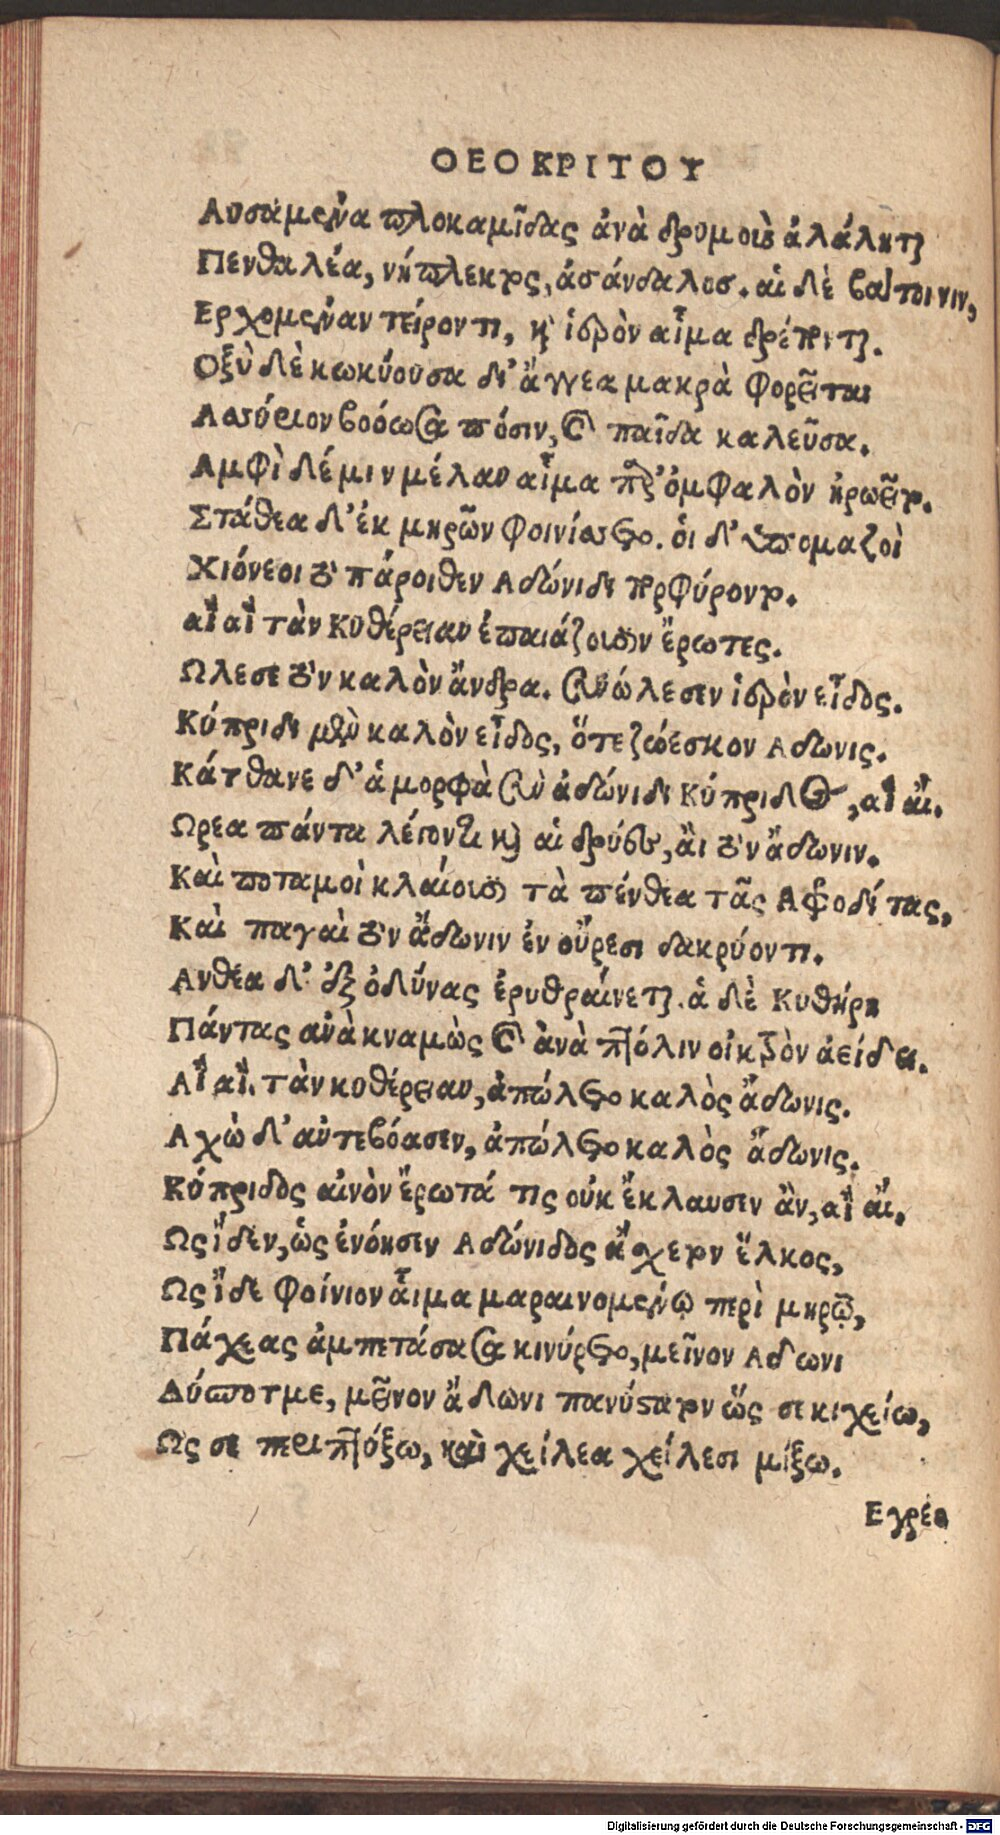 ΘΕΟΚΡΙΤΟΥ
Λυσαμένα πλοκαμῖδας ἀνὰ δρυμοὺς ἀλάληται
Πενθαλέα, νήπλεκτος, ἀσάνδαλος. αἱ δὲ βάτοι νιν,
Ερχομέναν τείροντι, καὶ ἱερὸν αἷμα δρέπονται.
Οξὺ δὲ κωκύουσα δι' ἄγγεα μακρὰ φορεῖται
Ασύριον βοόωσα πόσιν, καὶ παῖδα καλεῦσα.
Αμφὶ δέ μιν μέλαν αἷμα παρ' ὀμφαλὸν ἠρωεῖτο.
Στάθεα δ' ἐκ μηρῶν φοινίσσετο. οἱ δ' ὑπομαζοὶ
Χιόνεοι τοπάροιθεν Αδώνιδι πορφύροντο.
αἲ αἲ τὰν Κυθέρειαν ἐπαιάζουσιν ἔρωτες.
Ωλεσε τὸν καλὸν ἄνδρα. σὺν ὤλεσεν ἱερὸν εἶδος.
Κύπριδι μὲν καλὸν εἶδος, ὅτε ζώεσκον Αδωνις.
Κάτθανε δ' ἁ μορφὰ σὺν ἀδώνιδι Κύπριδος, αἲ αἴ.
Ωρεα πάντα λέγοντι καὶ αἱ δρύες, αἲ τὸν ἄδωνιν.
Καὶ ποταμοὶ κλαίουσι τὰ πένθεα τᾶς Αφροδίτας,
Καὶ παγαὶ τὸν ἄδωνιν ἐν οὔρεσι δακρύοντι.
Ανθέα δ' ἐξ ὀδύνας ἐρυθραίνεται. ἁ δὲ Κυθήρη
Πάντας ἀνὰ κναμὼς καὶ ἀνὰ πτόλιν οἰκτρὸν ἀείδει.
Αἲ αἴ. τὰν κυθέρειαν, ἀπώλετο καλὸς ἄδωνις.
Αχὼ δ' αὐτεβόασεν, ἀπώλετο καλὸς ἄδωνις.
Κύπριδος αἰνὸν ἔρωτά τις οὐκ ἔκλαυσεν ἂν, αἲ αἴ.
Ως ἴδεν, ὡς ἐνόησεν Αδώνιδος ἄχετον ἕλκος,
Ως ἴδε φοίνιον αἷμα μαραινομένῳ περὶ μηρῷ,
Πάχεας ἀμπετάσασα κινύρετο, μεῖνον Αδωνι
Δύσποτμε, μεῖνον ἄδωνι πανύστατον ὥς σε κιχείω,
Ως σε περιπτύξω, καὶ χείλεα χείλεσι μίξω.
Εγρέο
Digitalisierung gefördert durch die Deutsche Forschungsgemeinschaft - DFG